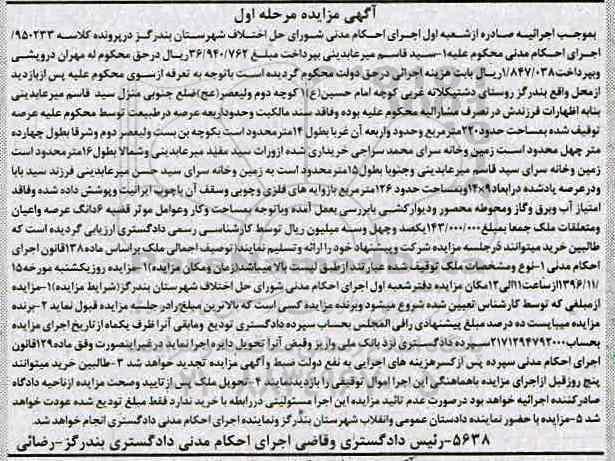 آگهی مزایده مرحله اول
بموجب اجرائیه صادره ازشعبه اول اجرای احکام مدنی شورای حل اختلاف شهرستان بندرگز درپرونده کلاسه ۹۵۰۲۳۳/
اجرای احکام مدنی محکوم علیه۱-سید قاسم میرعابدینی بپرداخت مبلغ ۳۶/۹۴۰/۷۶۲ریال درحق محکوم له مهران درویشی
وبپرداخت۱/۸۴۷/۰۳۸ریال بابت هزینه اجرائی درحق دولت محکوم گردیده است باتوجه به تعرفه ازسوی محکوم علیه پس ازبازدید
ازمحل واقع بندرگز روستای دشتیکلاته غربی کوچه امام حسین(ع)۱ کوچه دوم ولیعصر(عج)ضلع جنوبی منزل سید قاسم میرعابدینی
بنابه اظهارات فرزندش در تصرف مشارالیه محکوم علیه بوده وفاقد سند مالکیت وحدوداربعه عرصه درطبیعت توسط محکوم علیه عرصه
توقیف شده بمساحت حدود۲۲۰مترمربع وحدود واربعه آن غربا بطول ۱۴مترمحدود است بکوچه بن بست ولیعصر دوم وشرقا بطول چهارده
متر چهل محدود است زمین وخانه سرای محمد سراجی خریداری شده ازوراث سید مفید میرعابدینی وشمالا بطول۱۶مترمحدود است
زمین وخانه سرای سید قاسم میرعابدینی وجنوبا بطول۱۵مترمحدود است به زمین وخانه سرای سید حسن میرعابدینی فرزند سید بابا
ودرعرصه یادشده درابعاد۱۴×۹وبمساحت حدود ۱۲۶مترمربع بازوایه های فلزی وچوبی وسقف آن باچوب ایرانیت وپوشش داده شده وفاقد
امتیاز آب وبرق وگاز ومحوطه محصور ودیوارکشی بابررسی بعمل آمده وباتوجه بمساحت وکار وعوامل موثر قضیه ۶دانگ عرصه واعیان
ومتعلقات ملک جمعا بمبلغ۱۴۳/۰۰۰/۰۰۰یکصد وچهل وسه میلیون ریال توسط کارشناسی رسمی دادگستری ارزیابی گردیده است که
طالبین خرید میتوانند درجلسه مزایده شرکت وپیشنهاد خود را ارائه وتسلیم نمایند(توصیف اجمالی ملک براساس ماده۱۳۸قانون اجرای
احکام مدنی ۱-نوع ومشخصات ملک توقیف شده عبارتند ازطبق لیست بالا میباشد(زمان ومکان مزایده)۱-مزایده روزیکشنبه مورخه۱۵
/۱۳۹۶/۱۱ازساعت۱۱الی۱۲مکان مزایده دفترشعبه اول اجرای احکام مدنی شورای حل اختلاف شهرستان بندرگز(شرایط مزایده)۱-مزایده
ازمبلغی که توسط کارشناس تعیین شده شروع میشود وبرنده مزایده کسی است که بالاترین مبلغ رادر جلسه مزایده قبول نماید ۲-برنده
مزایده میبایست ده درصد مبلغ پیشنهادی رافی المجلس بحساب سپرده دادگستری تودیع ومابقی آنرا ظرف یکماه ازتاریخ اجرای مزایده
بحساب۲۱۷۱۲۹۴۷۹۲۰۰۰سپرده دادگستری نزد بانک ملی واریز وقبض آنرا تحویل دایره اجرا نماید درغیراینصورت وفق ماده۱۲۹قانون
اجرای احکام مدنی سپرده پس ازکسرهزینه های اجرایی به نفع دولت ضبط وآگهی مزایده تجدید خواهد شد ۳-طالبین خرید میتوانند
پنج روزقبل ازاجرای مزایده باهماهنگی این اجرا اموال توقیفی را بازدیدنمایند ۴-تحویل ملک پس ازتایید وصحت مزایده ازناحیه دادگاه
صادرکننده اجرائیه خواهد بود درصورت عدم تائید مزایده این اجرا مسئولیتی دررابطه با خرید ندارد فقط مبلغ تودیع شده عودت خواهد
شد ۵-مزایده با حضور نماینده دادستان عمومی وانقلاب شهرستان بندرگز ونماینده اجرای احکام مدنی دادگستری انجام خواهد شد.
۵۶۳۸-رئیس دادگستری وقاضی اجرای احکام مدنی دادگستری بندرگز-رضائی